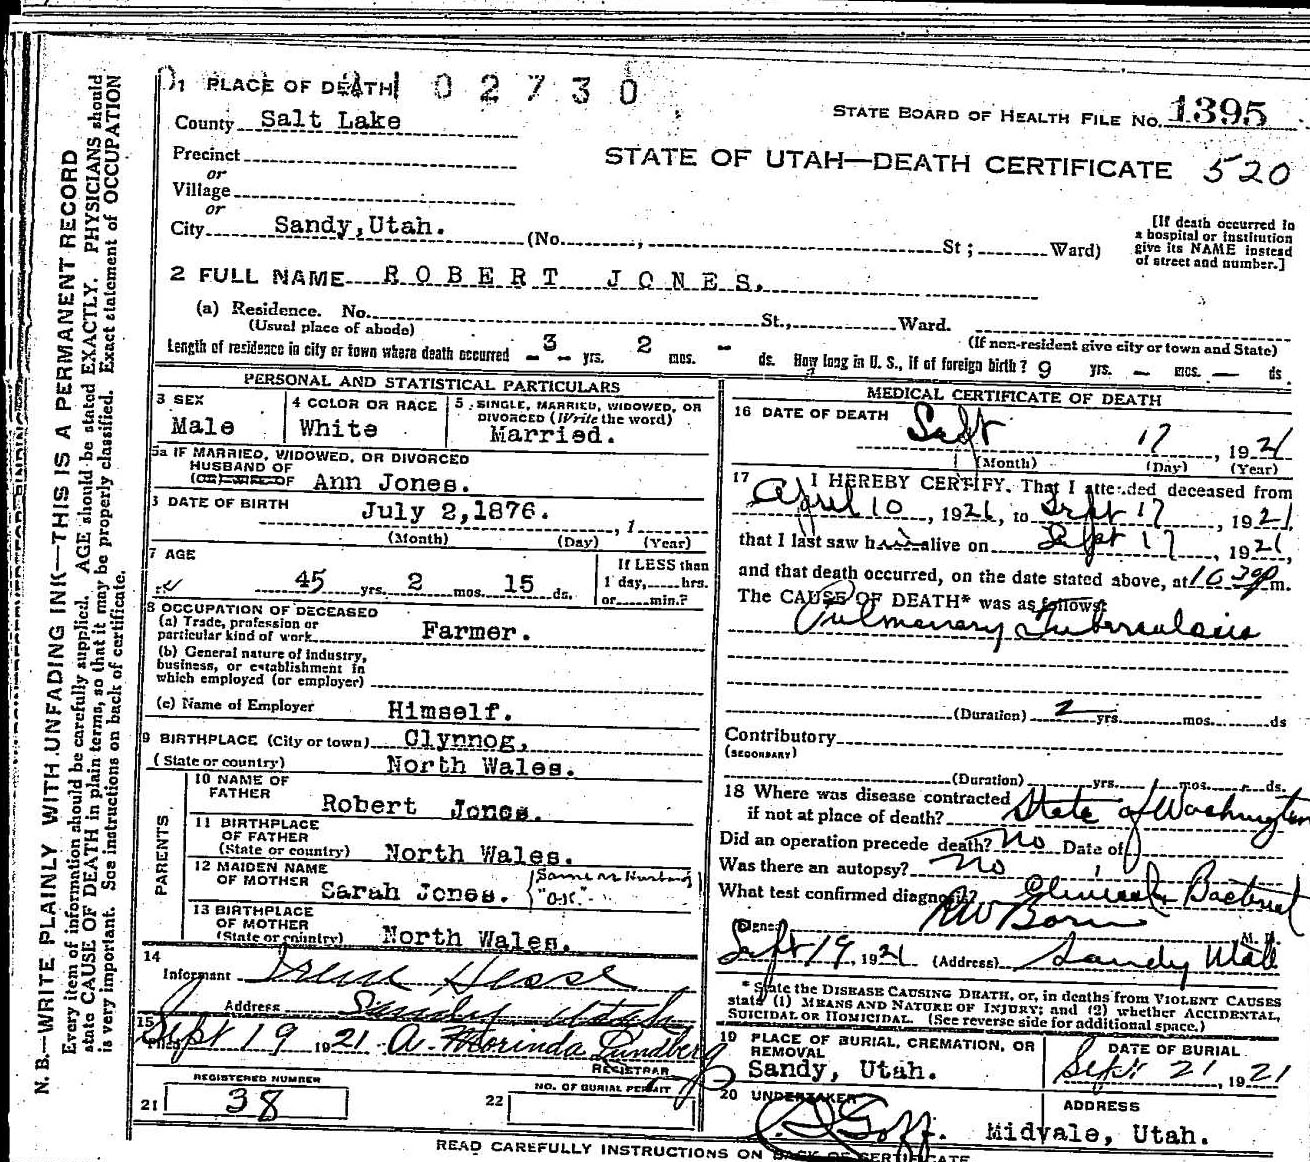 1 PLACE OF DEATH 02730
STATE BOARD OF HEALTH FILE No. 1395
County Salt Lake
STATE OF UTAH—DEATH CERTIFICATE 520
Precinct
or
Village
or
City Sandy, Utah. (No. , St; Ward)
[If death occurred in
a hospital or institution
give its NAME instead
of street and number.]
2 FULL NAME ROBERT JONES.
(a) Residence. No. St., Ward.
(Usual place of abode)
(If non-resident give city or town and State)
Length of residence in city or town where death occurred 3 yrs. 2 mos. - ds. How long in U. S., if of foreign birth? 9 yrs. — mos. — ds.
PERSONAL AND STATISTICAL PARTICULARS
3 SEX
Male
4 COLOR OR RACE
White
5 SINGLE, MARRIED, WIDOWED, OR
DIVORCED (Write the word)
Married.
5a IF MARRIED, WIDOWED, OR DIVORCED
HUSBAND OF
(OR) WIFE OF Ann Jones.
6 DATE OF BIRTH July 2, 1876. , 1
(Month) (Day) (Year)
7 AGE
45 yrs. 2 mos. 15 ds.
If LESS than
1 day, hrs.
or min.?
8 OCCUPATION OF DECEASED
(a) Trade, profession or
particular kind of work Farmer.
(b) General nature of industry,
business, or establishment in
which employed (or employer)
(c) Name of Employer Himself.
9 BIRTHPLACE (City or town) Clynnog,
(State or country) North Wales.
PARENTS
10 NAME OF
FATHER Robert Jones.
11 BIRTHPLACE
OF FATHER
(State or country) North Wales.
12 MAIDEN NAME
OF MOTHER Sarah Jones. (Same as Husband "O.K."
13 BIRTHPLACE
OF MOTHER
(State or country) North Wales.
14
Informant Irene Hesse
Address Sandy Utah
15
Filed Sept 19 1921 A. Morinda Lundberg
REGISTRAR
REGISTERED NUMBER
21 38
NO. OF BURIAL PERMIT
22
MEDICAL CERTIFICATE OF DEATH
16 DATE OF DEATH
Sept 17, 1921
(Month) (Day) (Year)
17 I HEREBY CERTIFY. That I attended deceased from
April 10, 1921, to Sept 17, 1921.
that I last saw him alive on Sept 17, 1921,
and that death occurred, on the date stated above, at 10 30p m.
The CAUSE OF DEATH* was as follows:
Pulmonary Tuberculosis
(Duration) 2 yrs. mos. ds
Contributory
(SECONDARY)
(Duration) yrs. mos. ds.
18 Where was disease contracted
if not at place of death? State of Washington
Did an operation precede death? No Date of
Was there an autopsy? No
What test confirmed diagnosis? Clinical & Bacterial
(Signed) RW Born M. D.
Sept 19, 1921 (Address) Sandy Utah
* State the DISEASE CAUSING DEATH, or, in deaths from VIOLENT CAUSES
state (1) MEANS AND NATURE OF INJURY; and (2) whether ACCIDENTAL,
SUICIDAL OR HOMICIDAL. (See reverse side for additional space.)
19 PLACE OF BURIAL, CREMATION, OR
REMOVAL
Sandy, Utah.
DATE OF BURIAL
Sept 21, 1921
20 UNDERTAKER
Goff.
ADDRESS
Midvale, Utah.
READ CAREFULLY INSTRUCTIONS ON BACK OF CERTIFICATE
N. B.—WRITE PLAINLY WITH UNFADING INK—THIS IS A PERMANENT RECORD
Every item of information should be carefully supplied. AGE should be stated EXACTLY. PHYSICIANS should
state CAUSE OF DEATH in plain terms, so that it may be properly classified. Exact statement of OCCUPATION
is very important. See instructions on back of certificate.